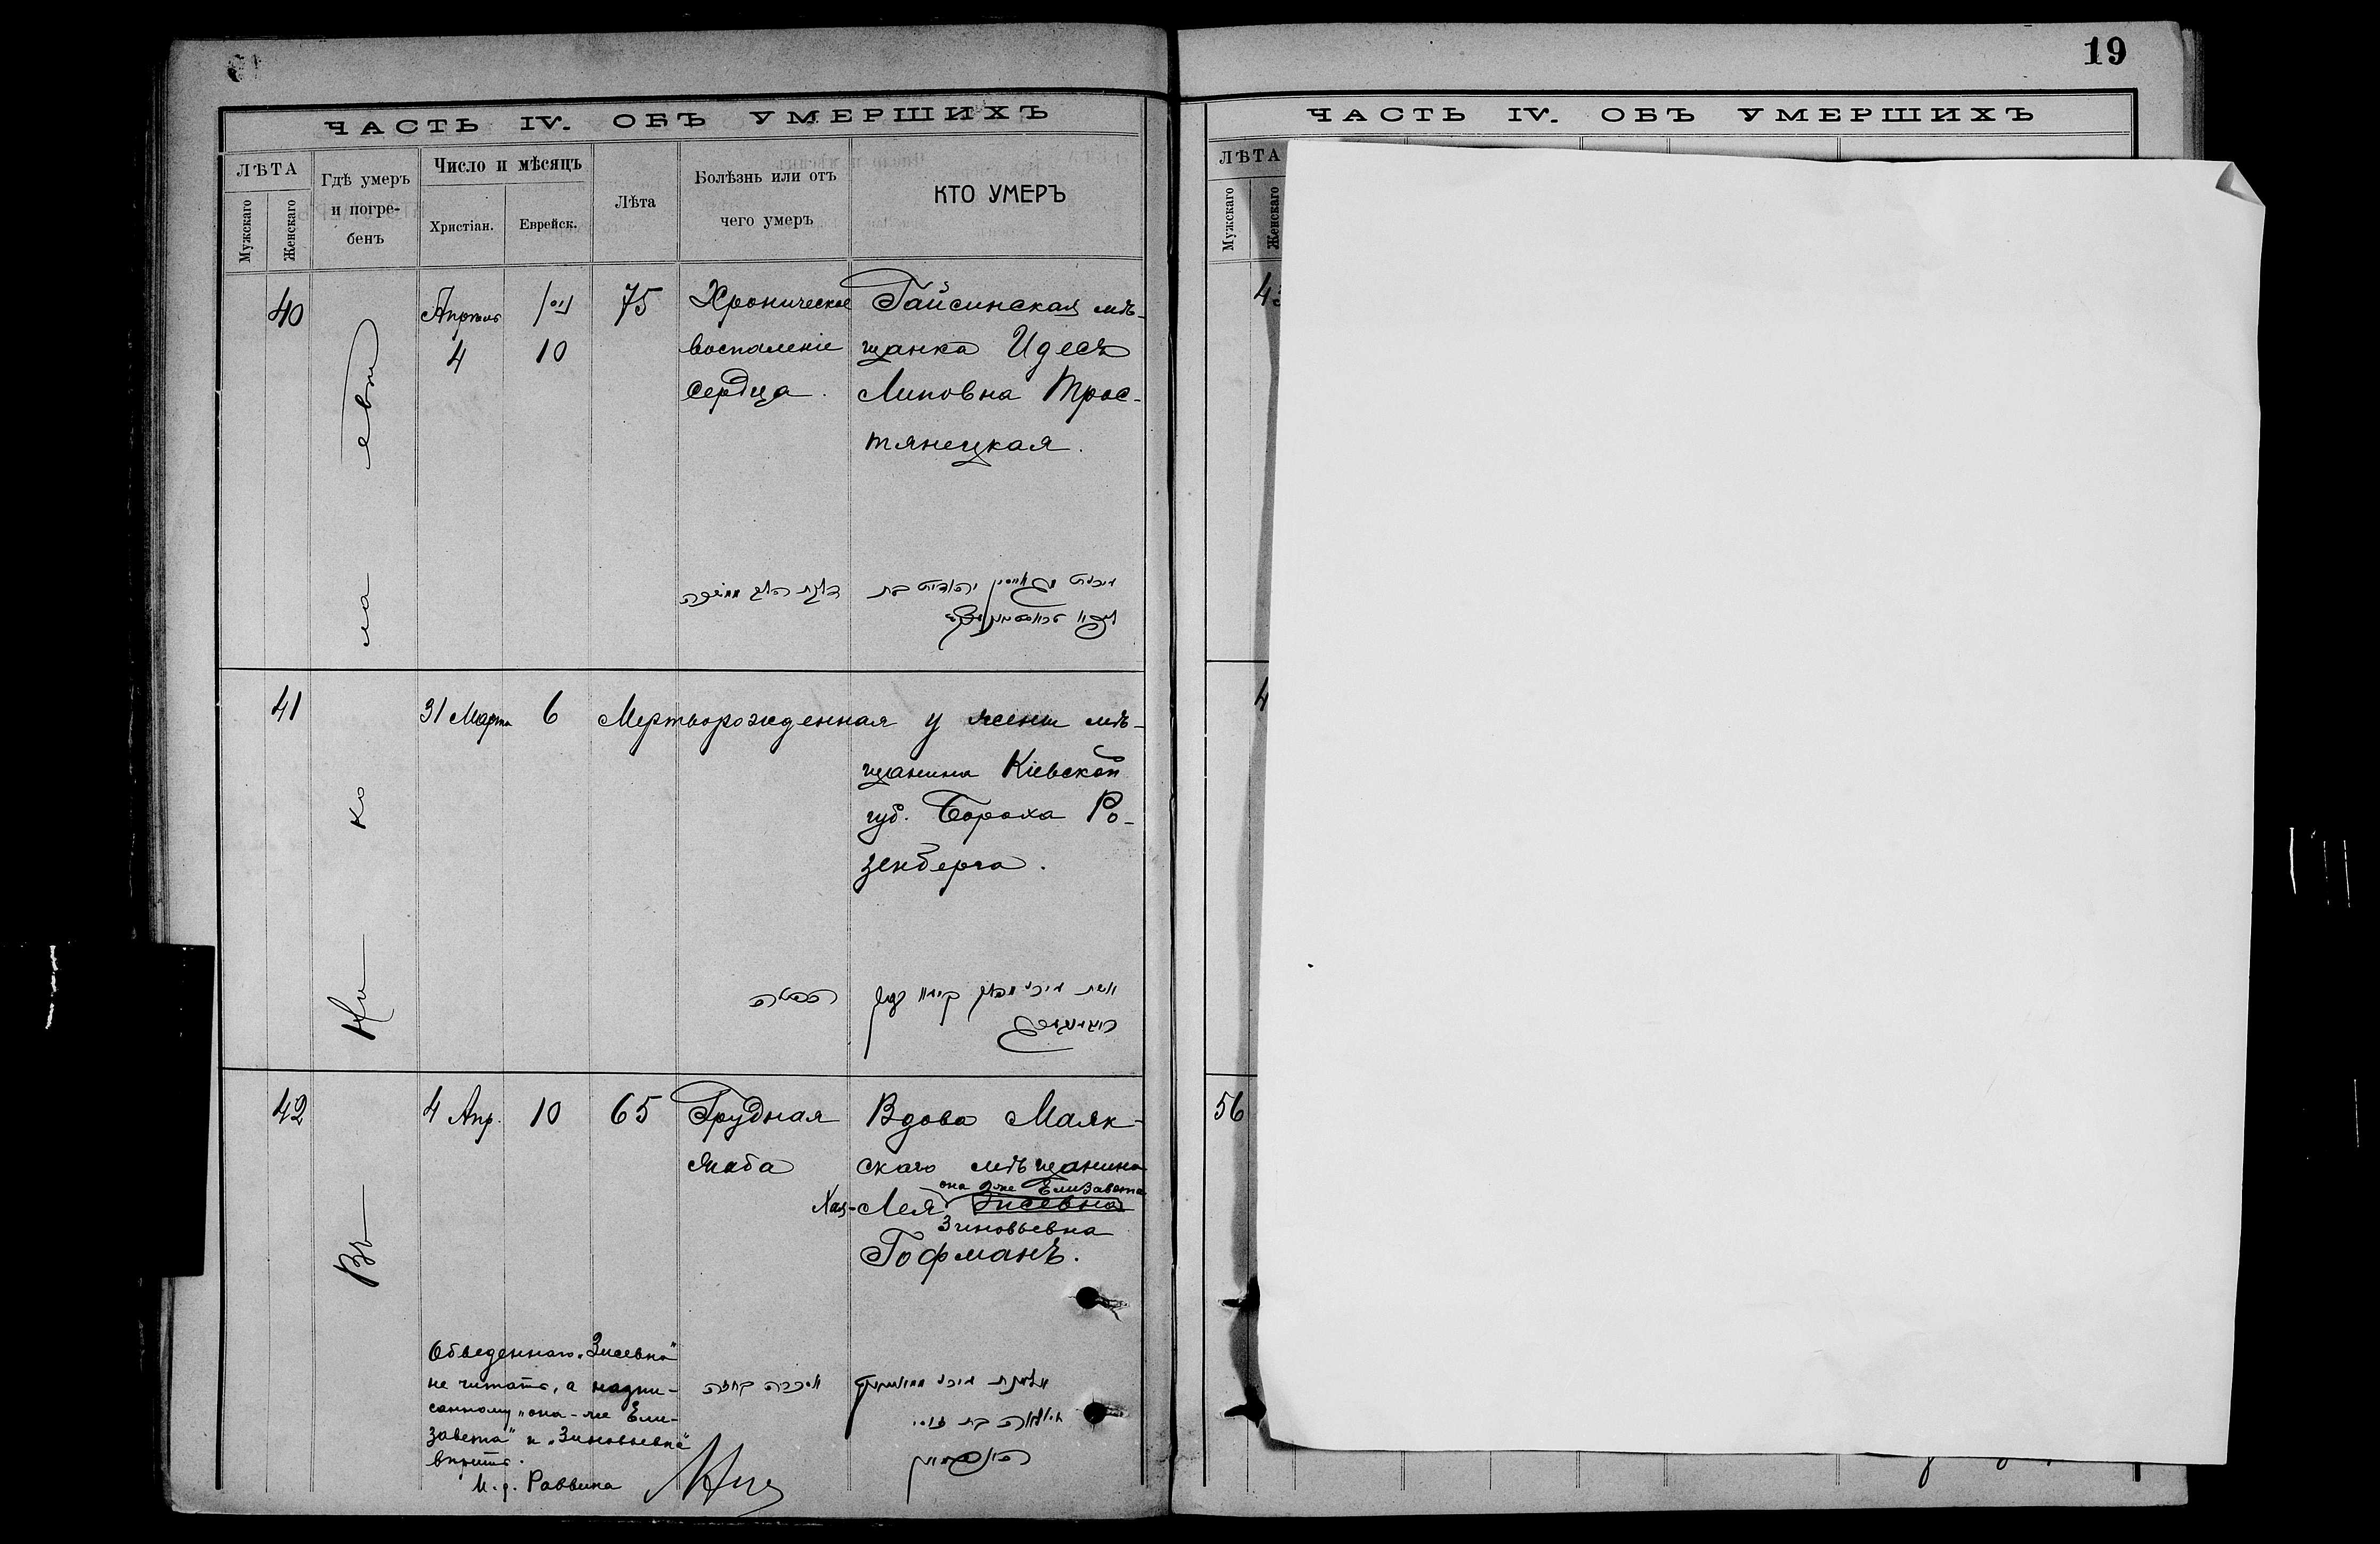 19
ЧАСТЬ IV. ОБЪ УМЕРШИХЪ
ЛѢТА
Мужскаго
Женскаго
Гдѣ умеръ
и погре-
бенъ
Число и мѣсяцъ
Христіан.
Еврейск.
Лѣта
Болѣзнь или отъ
чего умеръ
КТО УМЕРЪ
40
Апрѣль
4
ניסן
10
75
Хроническое
воспаленіе
сердца.
Гайсинская мѣ-
щанка Идесъ
Липовна Трос-
тянецкая.
41
31 Марта
6
Мертворожденная у жены мѣ-
щанина Кіевской
губ. Бороха Ро-
зенберга.
Въ
Ни
ко
ла
евѣ
42
4 Апр.
10
65
Грудная
жаба
Вдова Маяк-
скаго мѣщанина
она же Елизавета
Хая-Лея Зисевна
Зиновьевна
Гофманъ.
Обведеннаго „Зисевна"
не читать, а надпи-
санному „она-же Ели-
завета" и „Зиновьевна"
вѣрить.
И. д. Раввина
ЧАСТЬ IV. ОБЪ УМЕРШИХЪ
ЛѢТА
Мужскаго
Женскаго
4
4
56